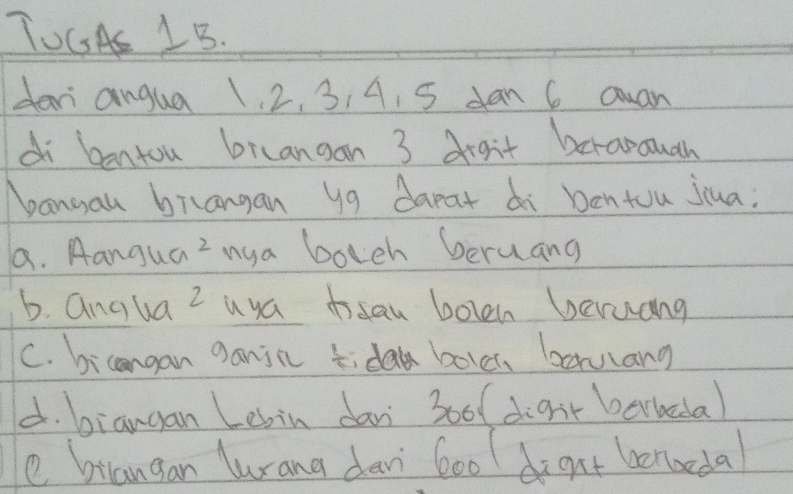 TUGAS 1B.
dari angka 1, 2, 3, 4, 5 dan 6 akan
di bentuk bilangan 3 digit berapakah
banyak bilangan yg dapat di bentuk jika:
a. Aangka² nya boleh berulang
b. angka² nya tidak boleh berulang
c. bilangan ganjil tidak boleh berulang
d. biangan lebih dari 300 (digit berbeda)
e bilangan kurang dari 600 (digit berbeda)